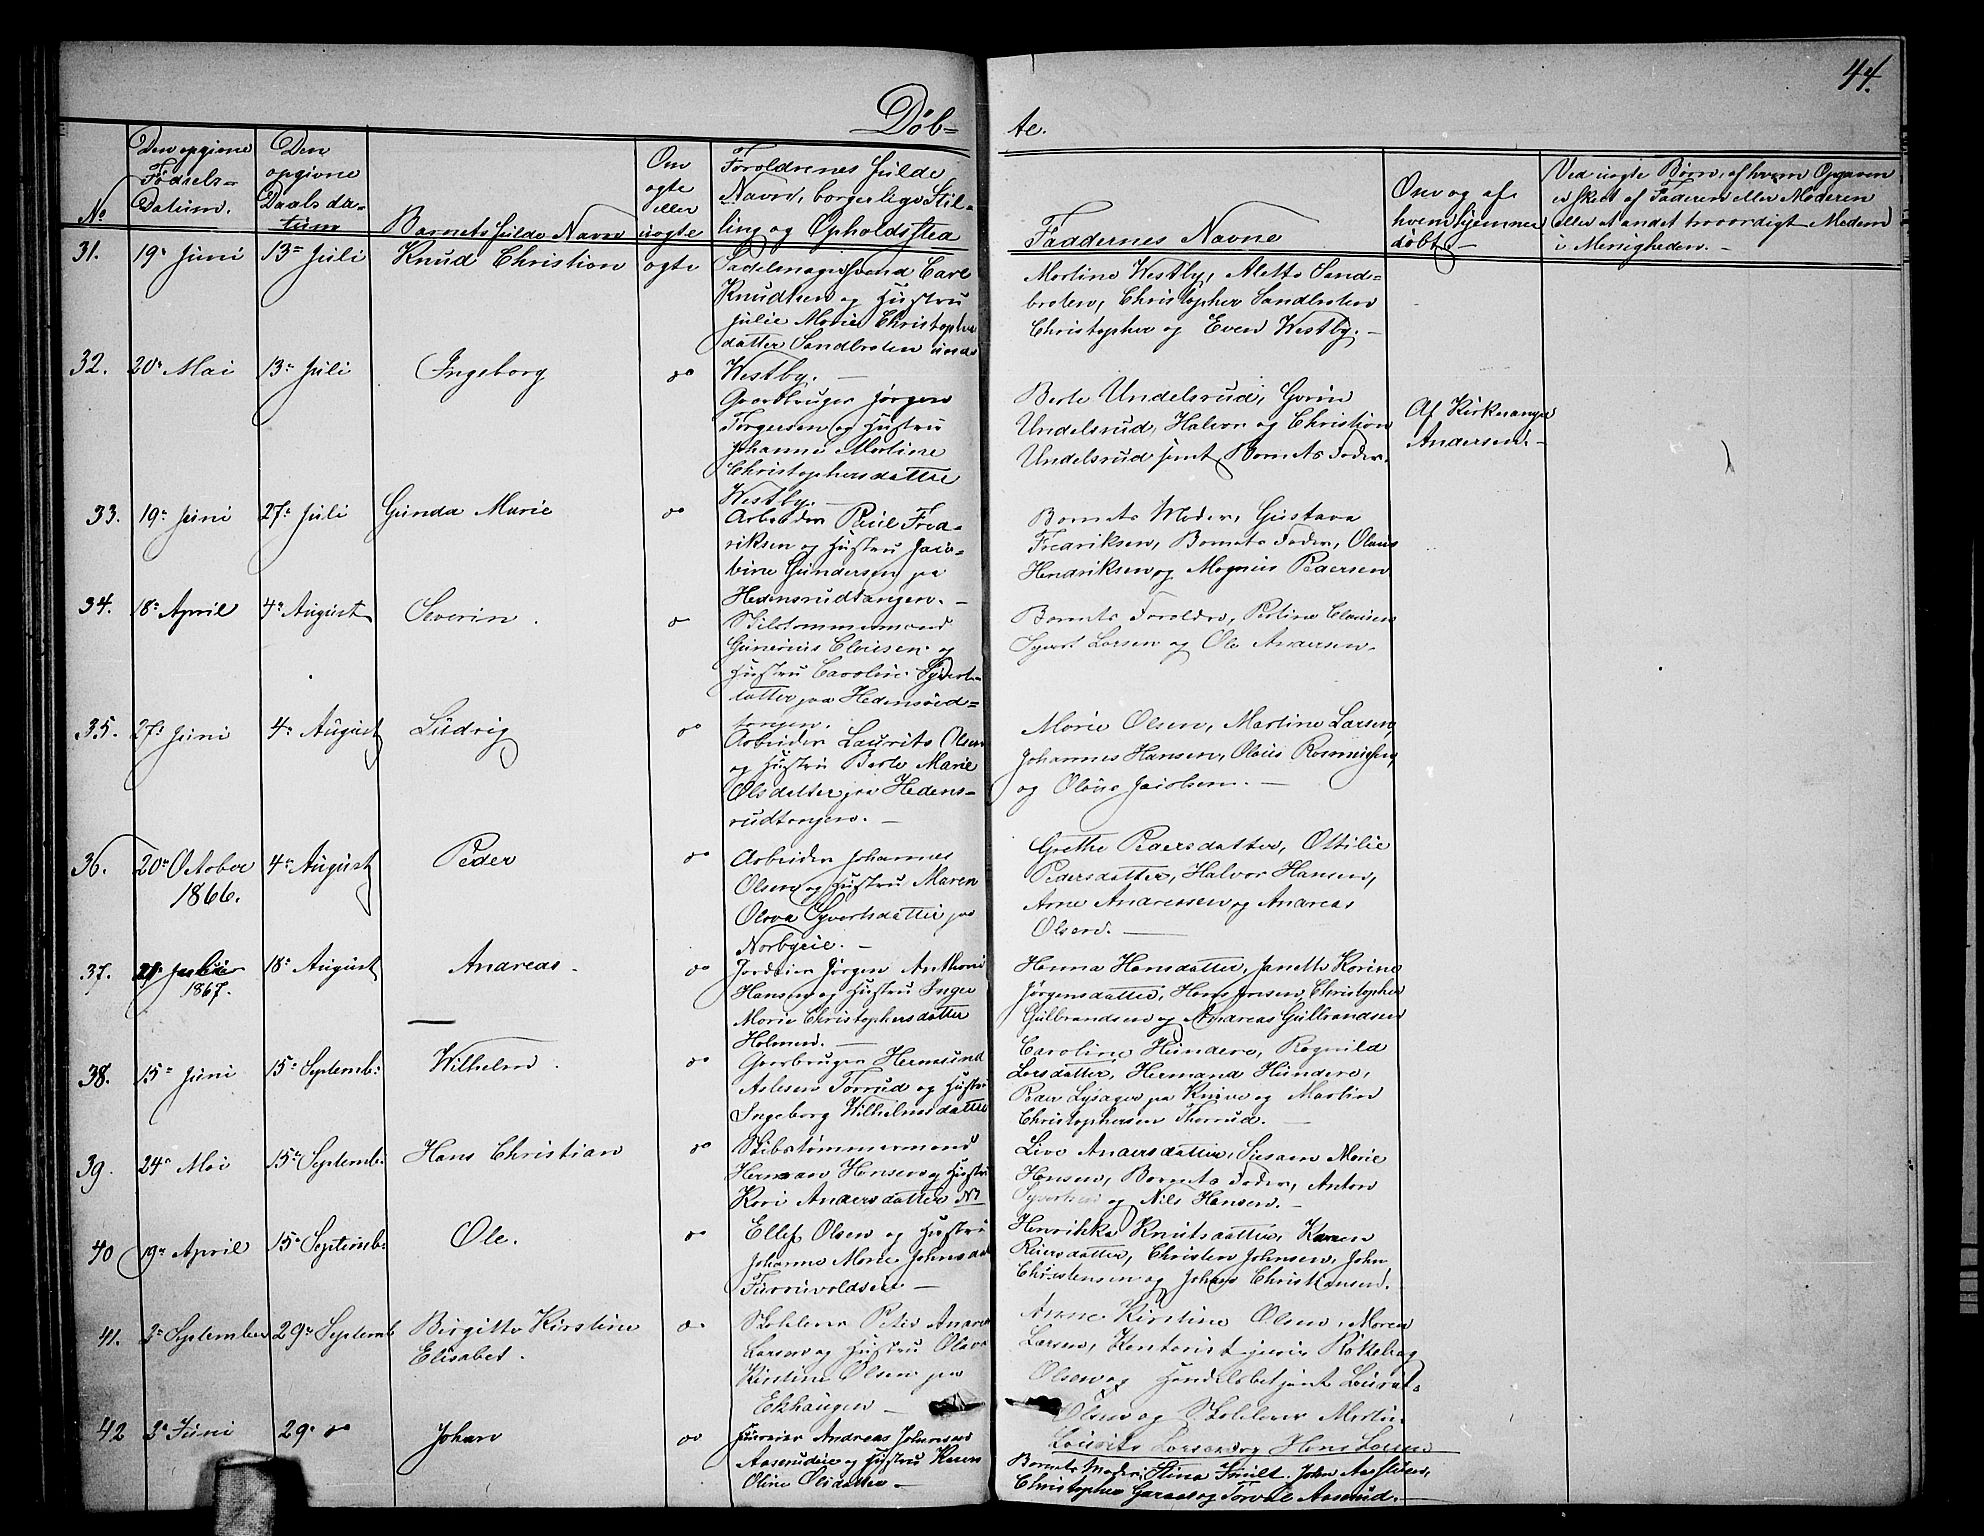 44.
Døb-
te.
No
Den opgivne
Fødsels-
Datum.
Den
opgivne
Daabsda-
tum
Barnets fulde Navn
Om
ægte
eller
uægte
Forældrenes fulde
Navn, borgerlige Stil-
ling og Opholdssted
Faddernes Navne
Om og af
hvem hjemme-
døbt.
Ved uægte Børn, af hvem Opgaven
er skeet af Faderen eller Moderen
eller et andet troværdigt Medlem
i Menigheden.
31. 19de Juni 13de Juli Knud Christian ægte
Sadelmagersvend Carl
Knudsen og Hustru
Julie Marie Christophers
datter Sandbroten under
Westby. —
Martine Westby, Alette Sand-
broten, Christopher Sandbroten
Christopher og Even Westby. —
32. 20de Mai 13de Juli Ingeborg do
Gaardbruger Jørgen
Torgersen og Hustru
Johanne Martine
Christophersdatter
Westby. —
Berte Undelsrud, Gorine
Undelsrud, Halvor og Christian
Undelsrud samt Barnets Fader.
Af Kirkesanger
Andersen. —
33. 19de Juni 27de Juli Gunda Marie do
Arbeider Paul Fred-
riksen og Hustru Jaco-
bine Gundersen paa
Hedensrudtangen. —
Barnets Moder, Gustava
Fredriksen, Barnets Fader, Olaus
Hendriksen og Magnus Pedersen
34. 18de April 4de August Severin. do
Skibstømmermand
Gunerius Clausen og
Hustru Caroline Syverts-
datter paa Hedensrud-
tangen.
Barnets Forældre, Petline Clausen
Syvert Larsen og Ole Andersen.
35. 27de Juni 4de August Ludvig do
Arbeider Laurits Olsen
og Hustru Berte Marie
Olsdatter paa Hedens-
rudtangen. —
Marie Olsen, Martine Larsen,
Johannes Hansen, Olaus
og Olaus Jacobsen. —
36. 20de October 4de August Peder do
1866.
Arbeider Johannes
Olsen og Hustru Maren
Olova Syvertsdatter paa
Norbyeie. —
Grethe Pedersdatter, Ottilie
Pedersdatter, Halvor Hansen,
Arne Andressen og Andreas
Olsen. —
37. 18de August Andreas. do
1867.
Jordeier Jørgen Anthoni
Hansen og Hustru Inger
Marie Christophersdatter
Holmen. —
Hanna Hansdatter, Janette Karine
Jørgensdatter, Hans Jensen, Christopher
Gulbrandsen og Andreas Gulbrandsen
38. 15de Juni 15de Septemb: Wilhelm. do
Gaardbruger Hermund
Aslesen Torrud og Hustru
Ingeborg Wilhelmsdatter
Caroline Hundere, Rognild
Larsdatter, Hermand Hundere,
Peder Lysager paa Knive og Martin
Christophersen Thorrud. —
39. 24de Mai 15de Septemb: Hans Christian do
Skibstømmermand
Herman Hansen og Hustru
Kari Andersdatter
Live Andersdatter, Susann Marie
Hansen, Barnets Fader, Anton
Syvertsen og Nils Hansen. —
40 19de April 15de Septemb: Ole. do
Ellef Olsen og Hustru
Johanne Marie Johnsdat
Furruvoldsen —
Henrikke Knutsdatter, Karen
Reiersdatter, Christen Johnsen, John
Christensen og Johan Christiansen.
41. 3de September 29de Septemb Birgitte Kirstine do
Elisabet.
Skolelærer Peter Andreas
Larsen og Hustru Olava
Kirstine Olsen paa
Ekhaugen —
Anne Kirstine Olsen, Maren
Larsen, Kontorist
Olsen og Handelsbetjent Laurits
Olsen og Skolelærer Martin
Laurits Larsen og Hans Larsen
42 3de Juni 29de do Johan do
Huuseier Andreas Johansen
Aaserudeie og Hustru Karen
Oline Olsdatter —
Barnets Moder, Stina Smilt, John Aasrud,
Christopher Garaas og Torvel Aaserud. —